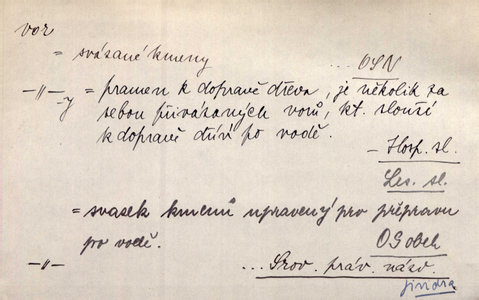 vor
= svázané kmeny ... OSN
—„— -y = pramen k dopravě dřeva, je několik za
sebou přivázaných vorů, kt. slouží
k dopravě dříví po vodě.
— Hosp. sl.
Les. sl.
= svazek kmenů upravený pro přepravu
po vodě. OS obch
—„— ... Srov. práv. názv.
jindra